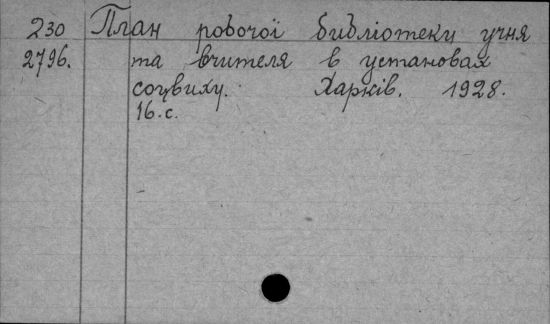 230 План робочої библіотеки учня
2796. та вчителя в установах
соцвиху. Харків. 1928.
16.с.